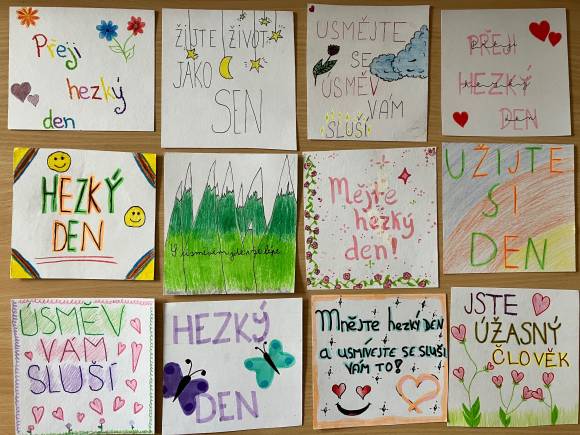 Přeji
hezký
den
ŽIJTE ŽIVOT
JAKO
SEN
USMĚJTE
SE
ÚSMĚV
VAM
SLUŠÍ
PŘEJI
HEZKÝ
DEN
HEZKÝ
DEN
S úsměvem jde vše lépe
Mějte
hezký
den!
UŽIJTE
SI
DEN
ÚSMĚV
VAM
SLUŠÍ
HEZKÝ
DEN
Mnějte hezký DEN
a USMÍVEJTE SE SLUŠÍ
VÁM TO!
JSTE
ÚŽASNÝ
ČLOVĚK